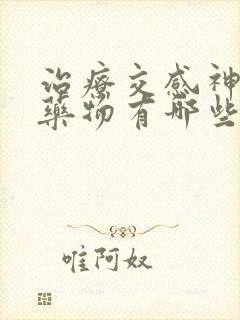 治療交感神
藥物有那些
唯阿奴